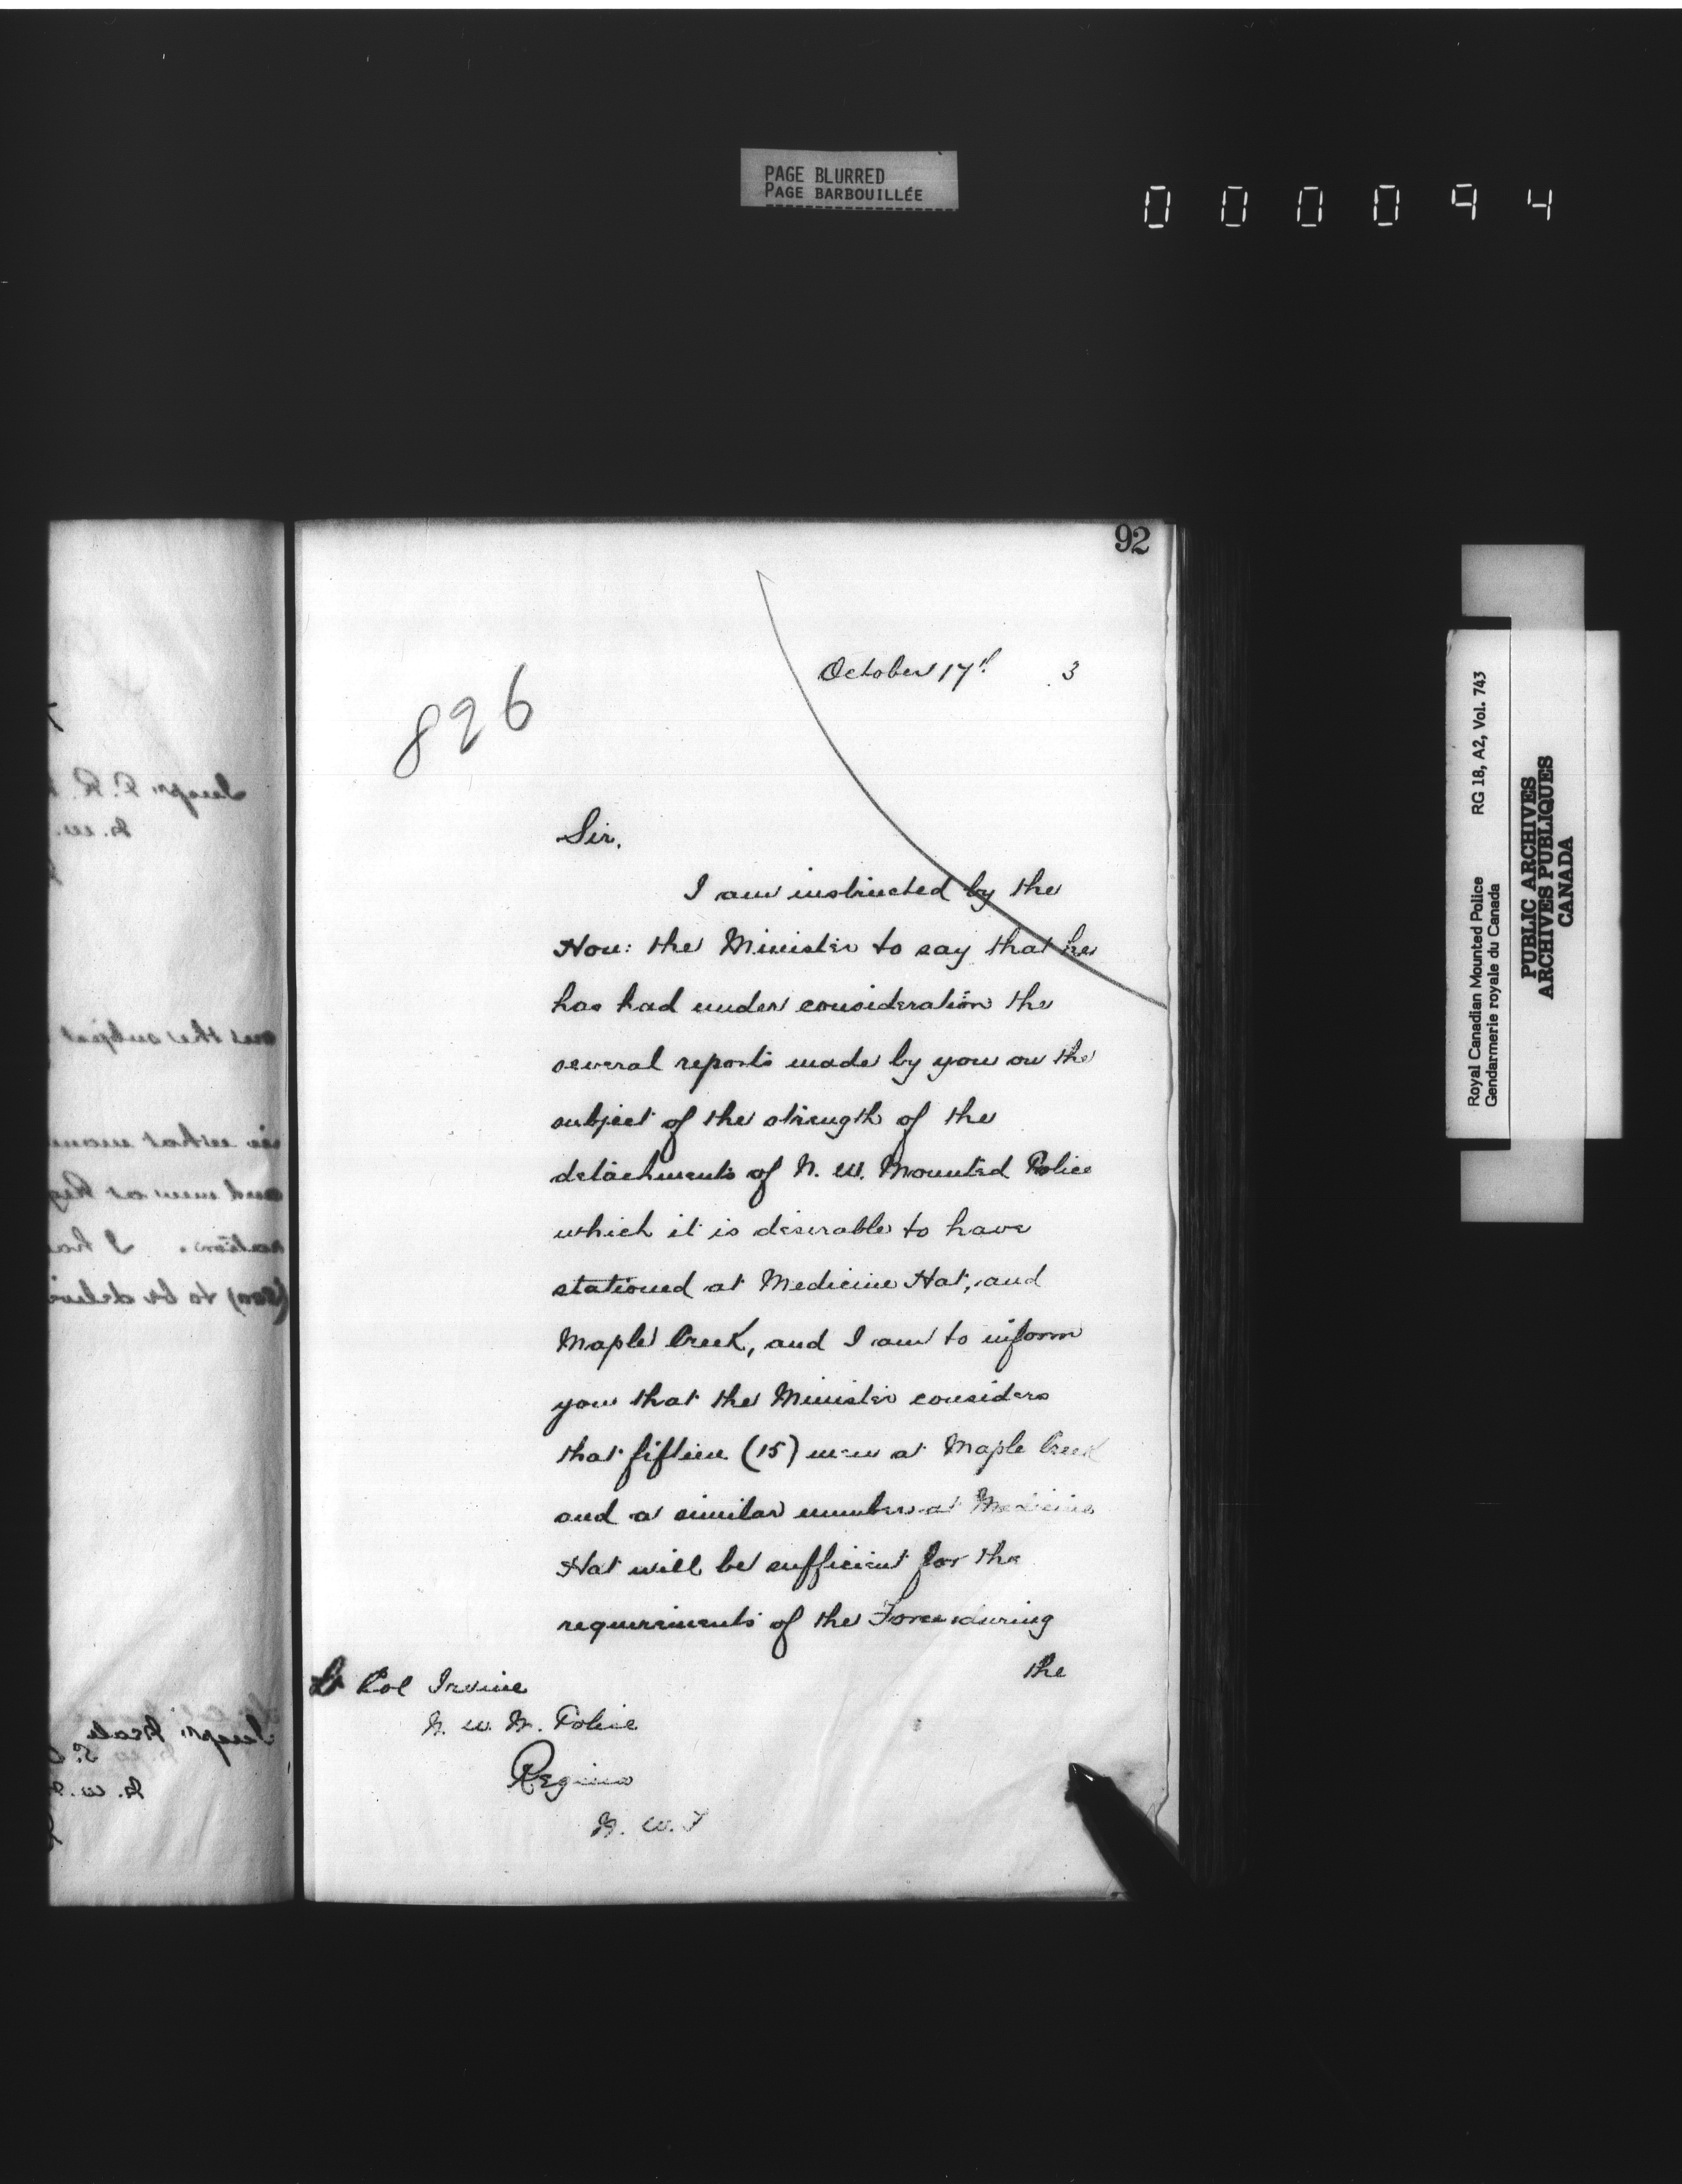 PAGE BLURRED
PAGE BARBOUILLÉE
000094
92
October 17th 3
896
Sir,
I am instructed by the
Hon: the Minister to say that he
has had under consideration the
several reports made by you on the
subject of the strength of the
detachments of N. W. Mounted Police
which it is desirable to have
stationed at Medicine Hat, and
Maple Creek, and I am to inform
you that the Minister considers
that fifteen (15) men at Maple Creek
and a similar number at Medicine
Hat will be sufficient for the
requirements of the Force during
the
Lt Col Irvine
N. W. M. Police
Regina
N. W. T
Royal Canadian Mounted Police RG 18, A2, Vol. 743
Gendarmerie royale du Canada
PUBLIC ARCHIVES
ARCHIVES PUBLIQUES
CANADA